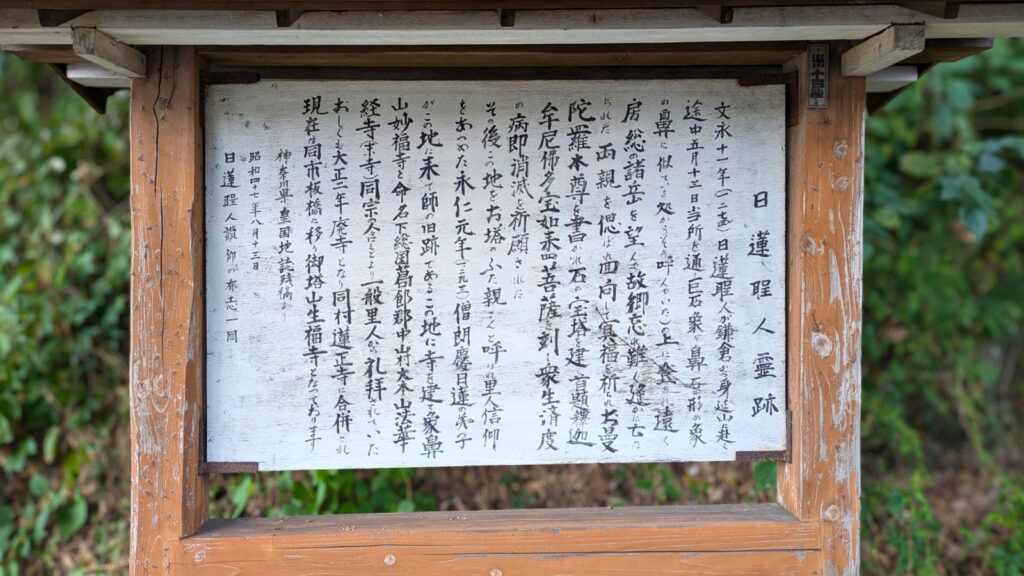 日蓮聖人霊跡
文永十一年(一二七四)日蓮聖人が鎌倉から身延山に赴く
途中五月十三日当所を通り巨石象ヶ鼻石の形が象
の鼻に似ている処からそう呼んでいたの上に登られ遠く
房総の諸岳を望んで故郷忘れ難く遙かに亡くな
られた両親を偲ばれ回向して冥福を祈られお曼
陀羅本尊を書かれ石の宝塔を建て首題釋迦
牟尼佛多宝如来四菩薩を刻し衆生済度
の病即消滅を祈願された
その後この地をお塔のふた親さんと呼び里人信仰
をあつめた永仁元年(一二九三)僧朗慶日蓮の弟子
がこの地に来て師の旧跡であるこの地に寺を建て象鼻
山妙福寺と命名下総国葛飾郡中山村大本山法華
経寺(末寺)同宗の人はもとより一般里人から礼拝されていた
おしくも大正二年廃寺となり同村蓮正寺に合併され
現在は同市板橋に移り御塔山生福寺となっております
神奈川県皇国地誌残稿より
昭和四十七年八月十三日
日蓮聖人讃仰の有志一同